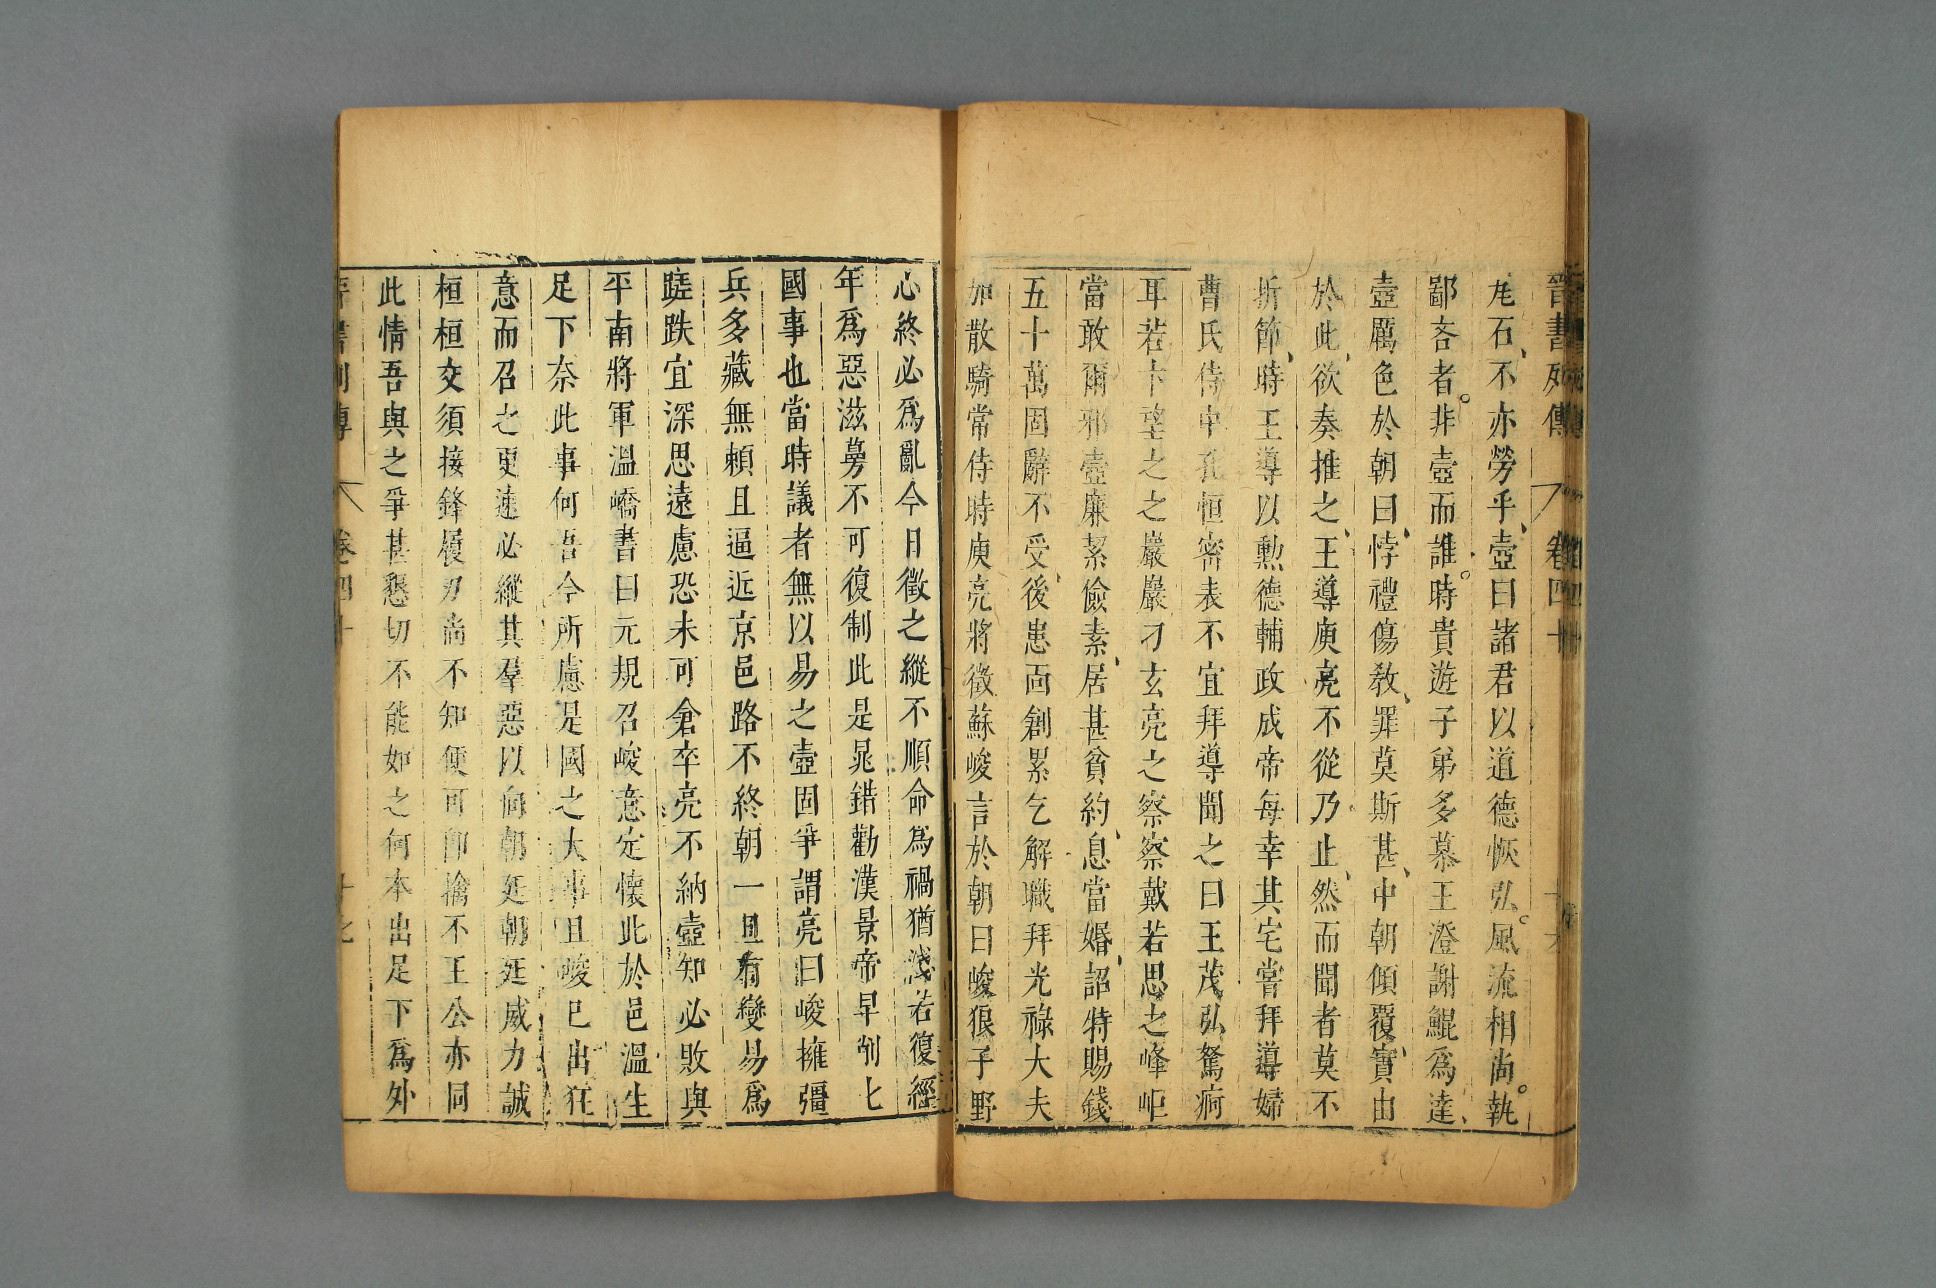 晉書列傳 卷四十
瓦石不亦勞乎壼曰諸君以道德恢弘風流相尚執
鄙吝者非壼而誰時貴遊子弟多慕王澄謝鯤爲達
壼厲色於朝曰悖禮傷教罪莫斯甚中朝傾覆實由
於此欲奏推之王導庾亮不從乃止然而聞者莫不
折節時王導以勲德輔政成帝每幸其宅嘗拜導婦
曹氏侍中孔恒密表不宜拜導聞之曰王茂弘駑痾
耳若卞望之之巖巖刁玄亮之察察戴若思之峰岠
當敢爾邪壼廉絜儉素居甚貧約息當婚詔特賜錢
五十萬固辭不受後患面創累乞解職拜光祿大夫
加散騎常侍時庾亮將徵蘇峻言於朝曰峻狼子野
心終必爲亂今日徵之縱不順命爲禍猶淺若復經
年爲惡滋蔓不可復制此是鼂錯勸漢景帝早削七
國事也當時議者無以易之壼固爭謂亮曰峻擁彊
兵多藏無賴且逼近京邑路不終朝一旦有變易爲
蹉跌宜深思遠慮恐未可倉卒亮不納壼知必敗與
平南將軍溫嶠書曰元規召峻意定懷此於邑溫生
足下奈此事何吾今所慮是國之大事且峻已出狂
意而召之更速必縱其羣惡以向朝廷朝廷威力誠
桓桓交須接鋒履刃尚不知便可卽擒不王公亦同
此情吾與之爭甚懇切不能如之何本出足下爲外
晉書列傳 卷四十 十七